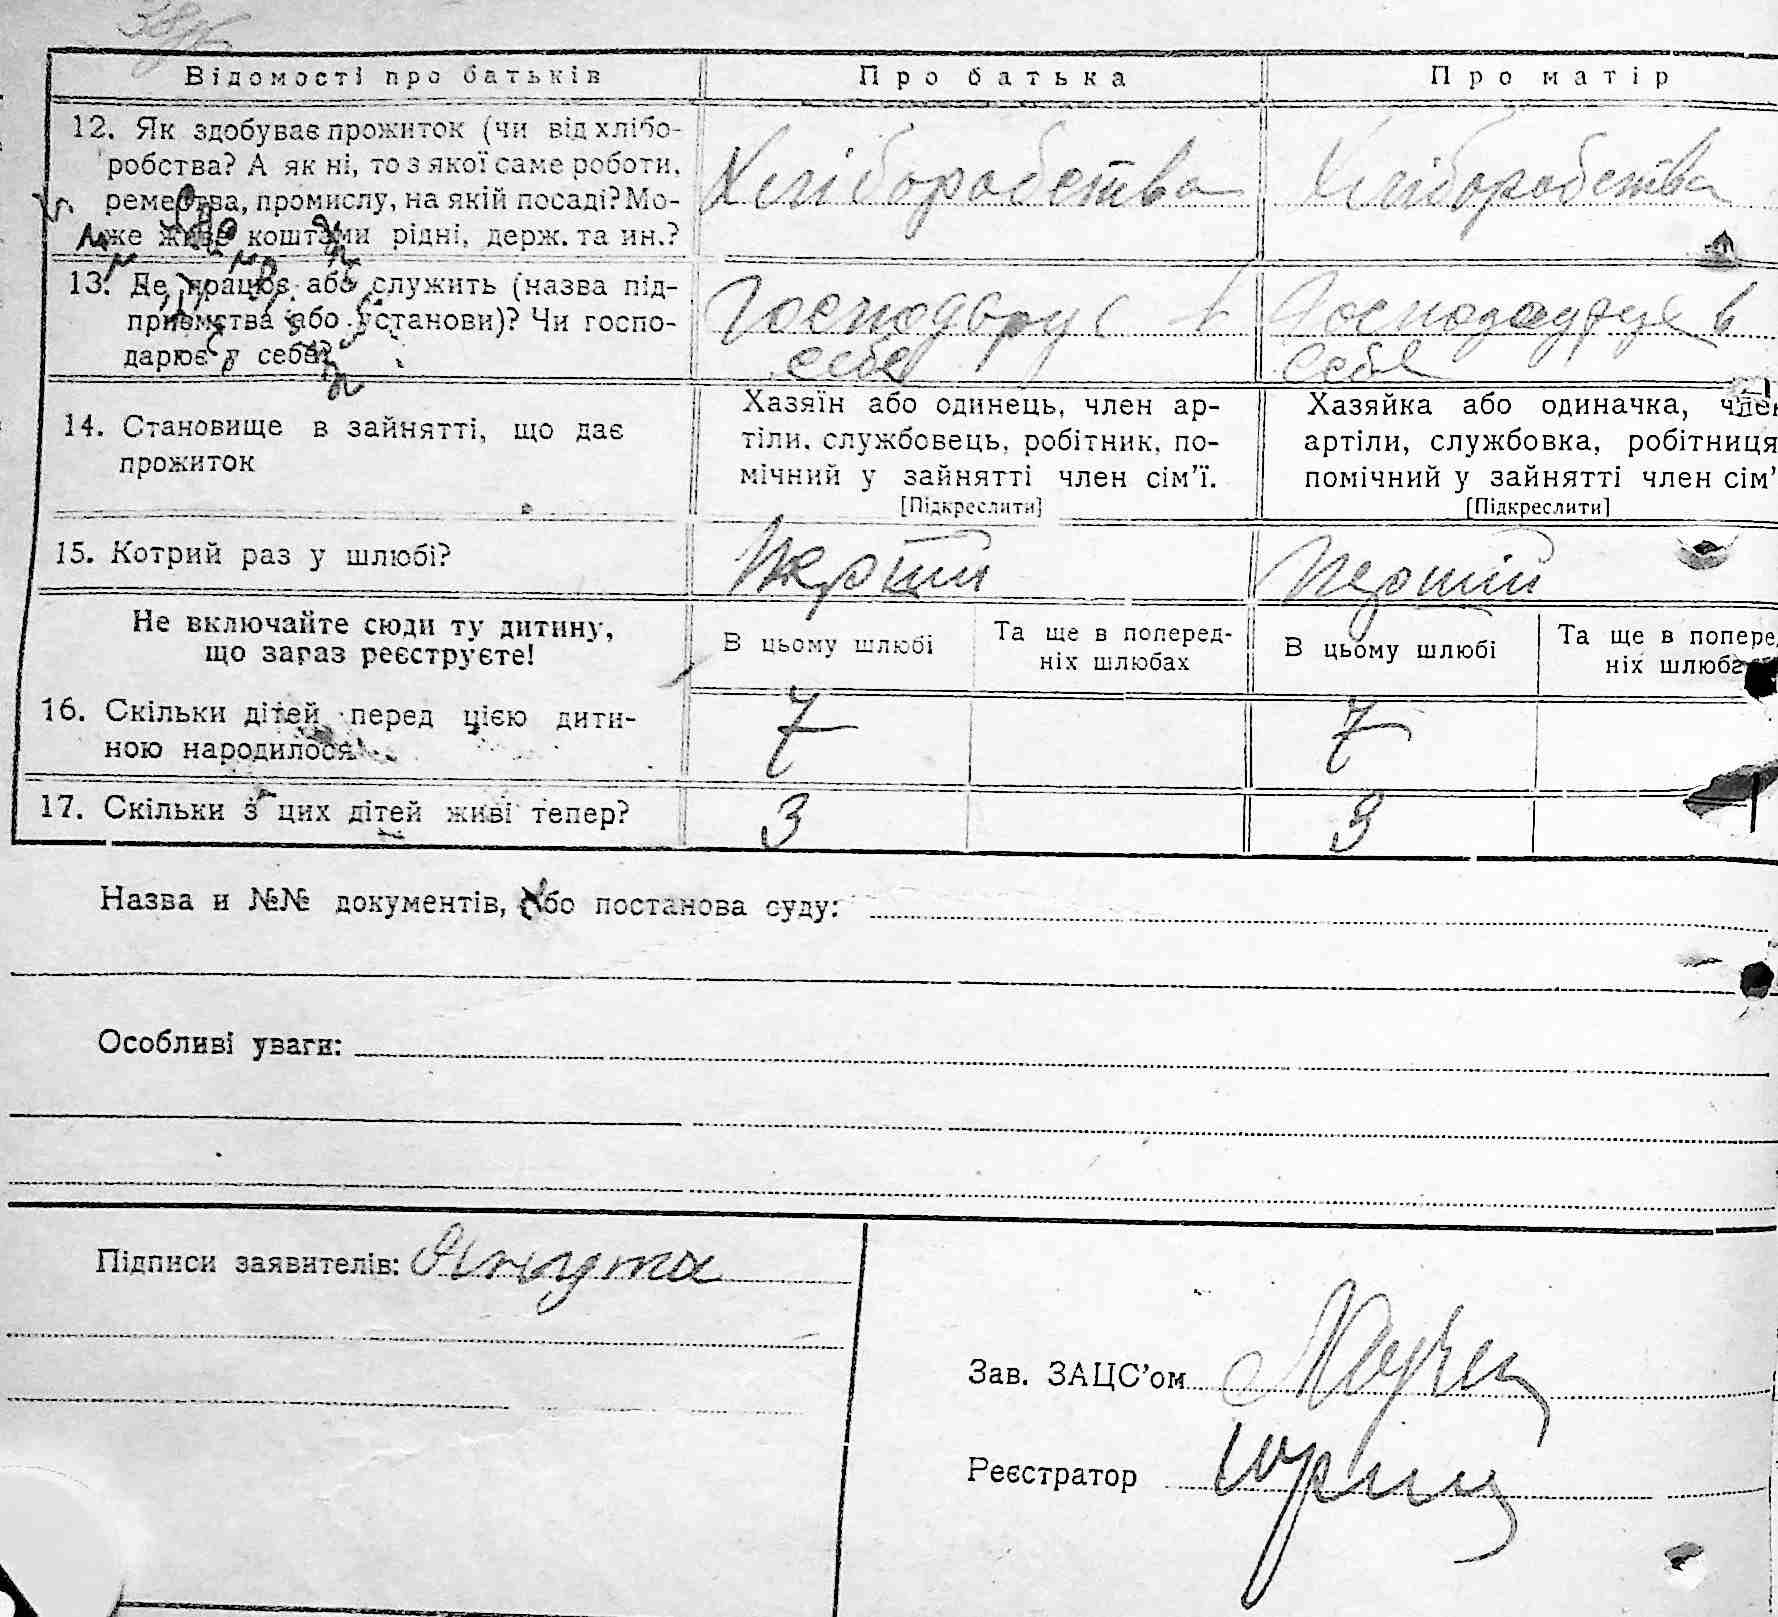 Відомості про батьків
Про батька
Про матір
12. Як здобуває прожиток (чи від хлібо-
робства? А як ні, то з якої саме роботи,
ремества, промислу, на якій посаді? Мо-
же живе коштами рідні, держ. та ин.?
Хліборобства
Хліборобства
13. Де працює або служить (назва під-
приємства або установи)? Чи госпо-
дарює у себе?
Господарує в
себе
Господарує в
себе
14. Становище в зайнятті, що дає
прожиток
Хазяїн або одинець, член ар-
тіли, службовець, робітник, по-
мічний у зайнятті член сім'ї.
[Підкреслити]
Хазяйка або одиначка, член
артіли, службовка, робітниця
помічний у зайнятті член сім'
[Підкреслити]
15. Котрий раз у шлюбі?
Перший
Перший
Не включайте сюди ту дитину,
що зараз реєструєте!
В цьому шлюбі
Та ще в поперед-
ніх шлюбах
В цьому шлюбі
Та ще в попере
ніх шлюба
16. Скільки дітей перед цією дити-
ною народилося
7
7
17. Скільки з цих дітей живі тепер?
3
3
Назва и №№ документів, або постанова суду:
Особливі уваги:
Підписи заявителів:
Зав. ЗАЦС'ом
Реєстратор